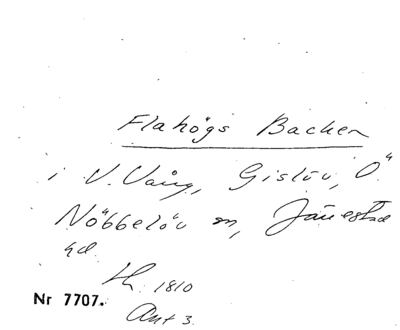 Flahögs Backen
i V. Vång, Gislöv, Ö
Nöbbelöv sn, Järrestad
hd.
Lh. 1810
Nr 7707.
Ant 3.